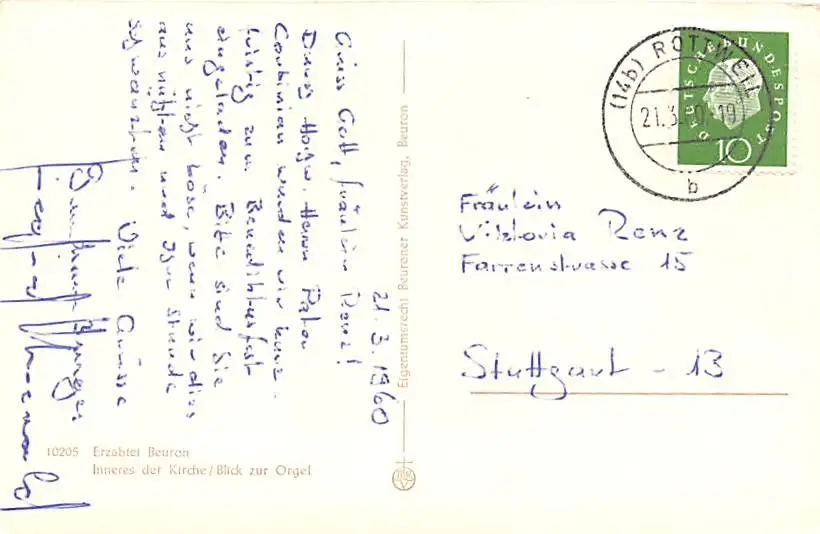 21.3.1960
Grüss Gott, Fräulein Renz!
Durch Hochw. Herrn Pater
Corbinian wurden wir kurz-
fristig zum Benediktusfest
eingeladen. Bitte sind Sie
uns nicht böse, wenn wir dies
ausnützen und Ihre Stunde
schwänzen. Viele Grüsse
Fräulein
Viktoria Renz
Farrenstrasse 15
Stuttgart - 13
(14b) ROTTWEIL
21.3.60-19
b
DEUTSCHE BUNDESPOST
10
Eigentumsrecht Beuroner Kunstverlag, Beuron
10205 Erzabtei Beuron
Inneres der Kirche/Blick zur Orgel